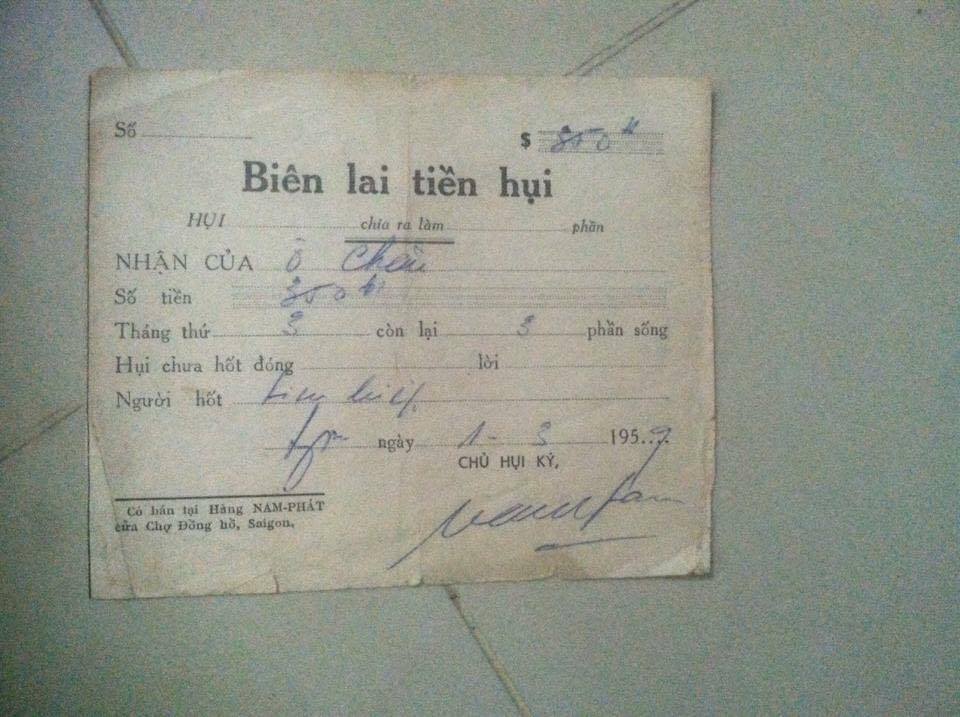 Số
$ 350
Biên lai tiền hụi
HỤI chia ra làm phần
NHẬN CỦA Ô
Số tiền 350
Tháng thứ 3 còn lại 3 phần sống
Hụi chưa hốt đóng lời
Người hốt
ngày 1 - 3 1959
CHỦ HỤI KÝ,
Có bán tại Hàng NAM-PHÁT
cửa Chợ Đồng hồ, Saigon.